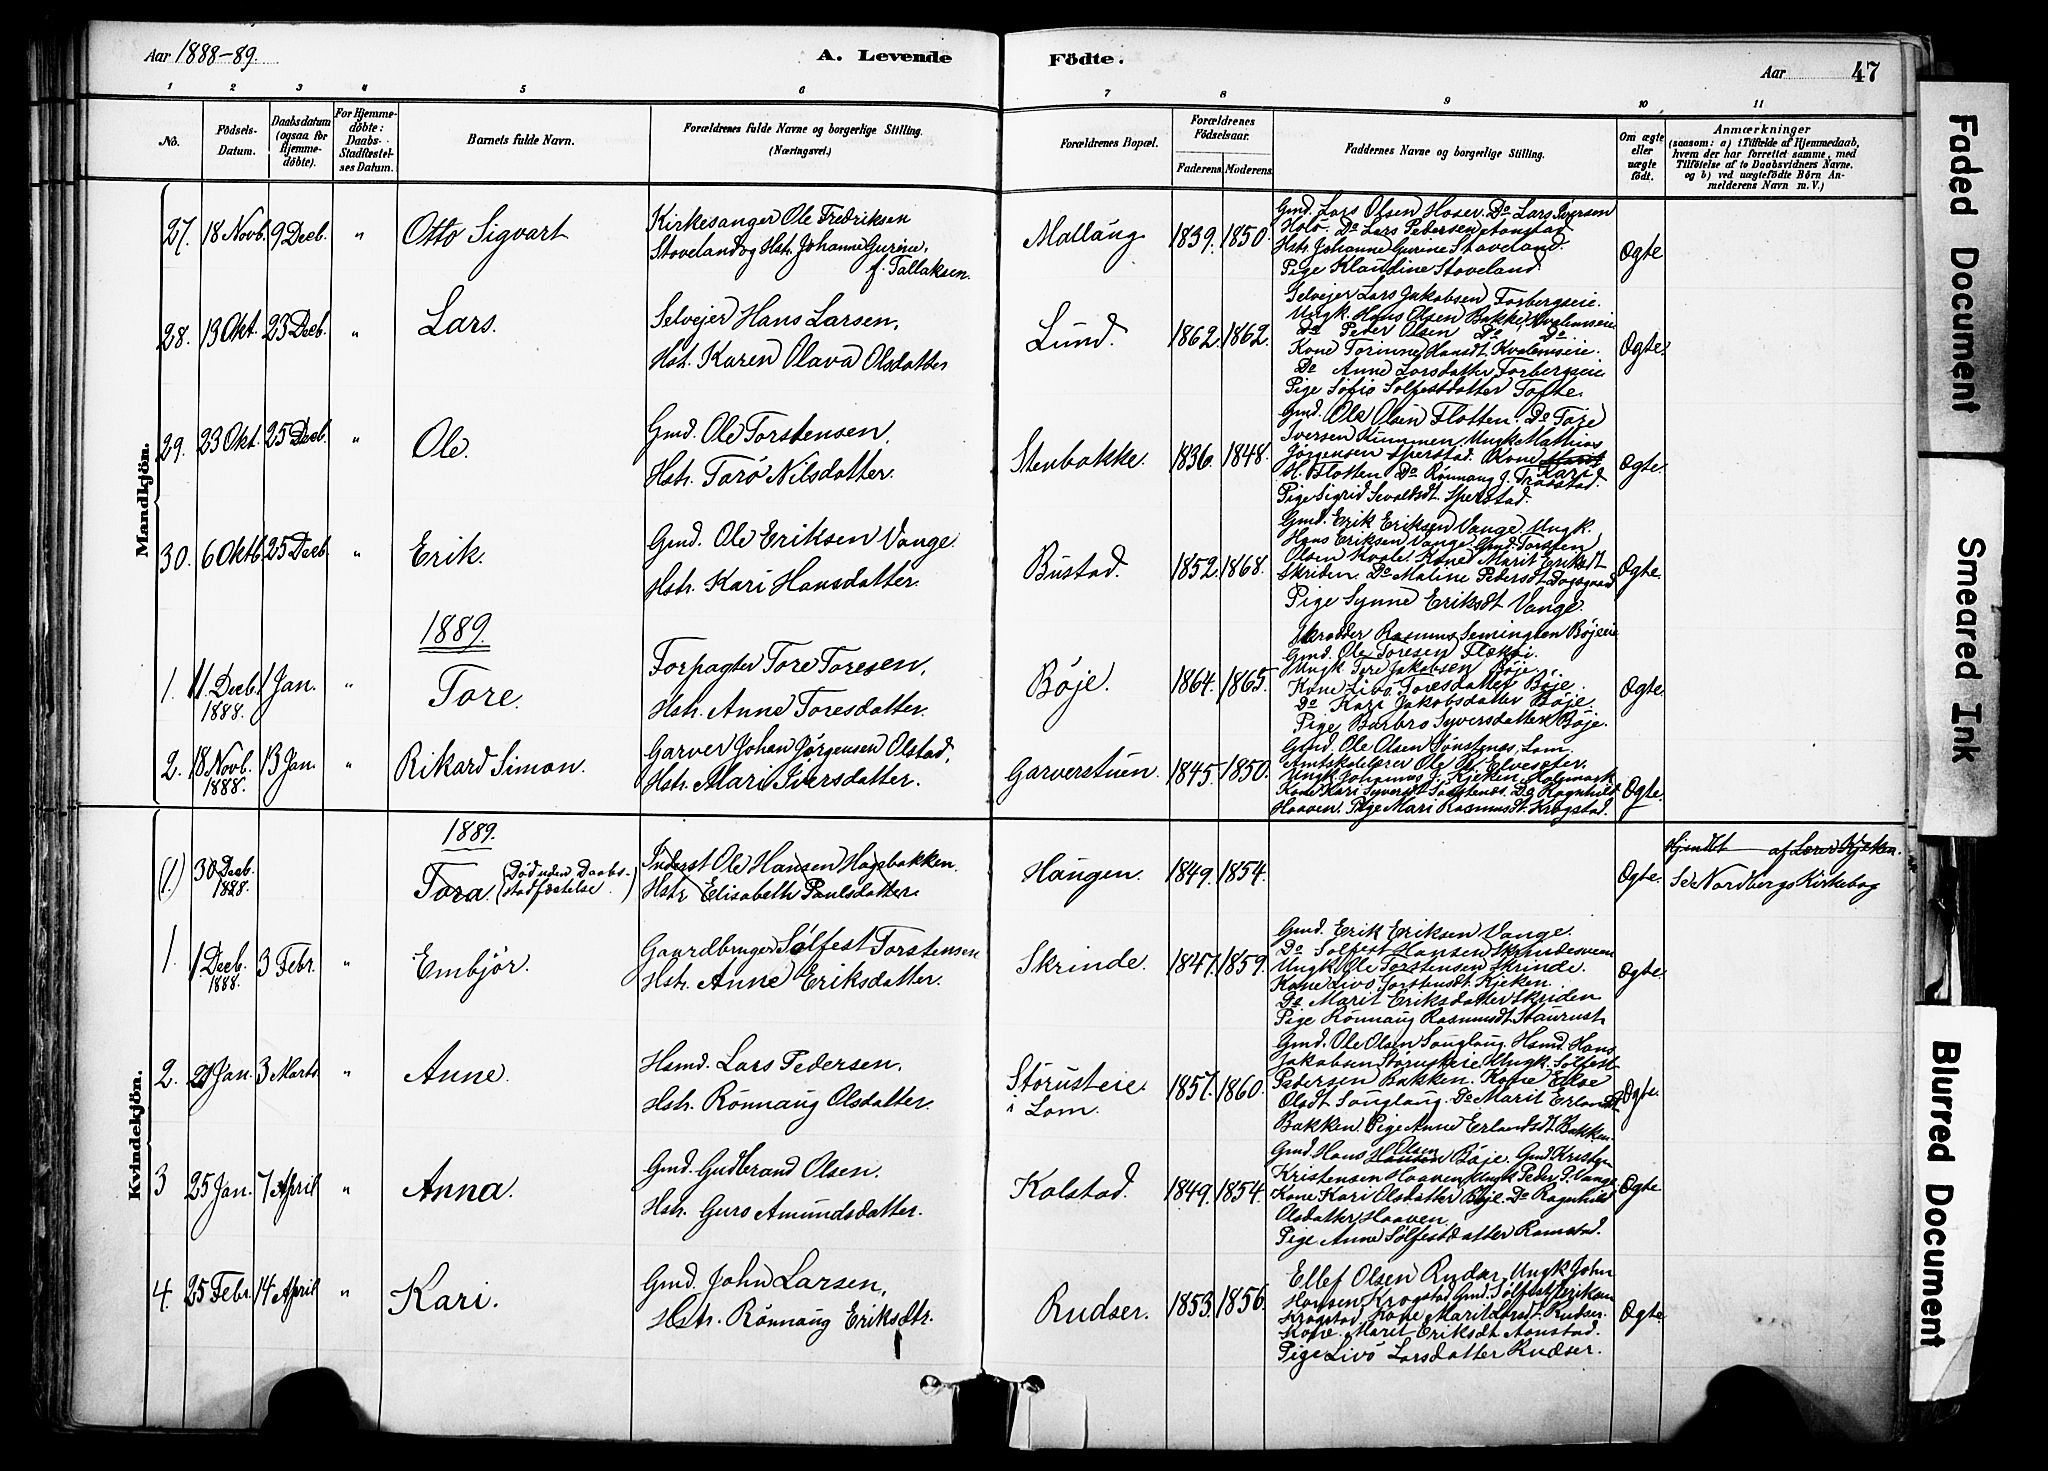 Aar 1888-89.
A. Levende
Födte.
Aar
47
1 2 3 4 5 6 7 8 9 10 11
No.
Födsels-
Datum.
Daabsdatum
(ogsaa for
Hjemme-
döbte).
For Hjemme-
döbte:
Daabs-
Stadfæstel-
ses Datum.
Barnets fulde Navn.
Forældrenes fulde Navne og borgerlige Stilling.
(Næringsvei.)
Forældrenes Bopæl.
Forældrenes
Födselsaar.
Faderens. Moderens.
Faddernes Navne og borgerlige Stilling.
Om ægte
eller
uægte
födt.
Anmærkninger
(saasom: a) i Tilfælde af Hjemmedaab,
hvem der har forrettet samme, med
Tilföielse af to Daabsvidners Navne,
og b) ved uægtefödte Börn An-
melderens Navn m. V.)
Mandkjön.
27. 18 Novb. 9 Decb. " Otto Sigvart
Kirkesanger Ole Fredriksen
Stoveland og Hstr. Johanne Gurine,
f. Tallaksen.
Mallaŭg 1839. 1850.
Gmd. Lars Olsen Hoser. Do Lars Iversen
Holö. Do Lars Pedersen Aanstad.
Hstr. Johanne Gurine Stoveland.
Pige Klaudine Stoveland.
Ogte
28. 13 Okt. 23 Decb. " Lars.
Selvejer Hans Larsen,
Hstr. Karen Olava Olsdatter
Lŭnd. 1862. 1862.
Selvejer Lars Jakobsen Forbergseie.
Ungk. Hans Olsen Bakke, Kvalemseie
Do Peder Olsen Do Do
Kone Torinne Hansdt. Kvalemseie.
Do Anne Larsdatter Forbergseie
Pige Söfie Sölfestdatter Tofte.
Ogte.
29. 23 Okt. 25 Decb. " Ole.
Gmd. Ole Torstensen,
Hstr. Tarö Nilsdatter.
Stenbakke. 1836. 1848.
Gmd. Ole Olsen Flotten. Do Tore
Iversen Kummen. Ungk Mathias
Jörgensen Sperstad. Kone
Kari
H. Flotten Do Rönnaug J. Traastad.
Pige Sigrid Sevaldsdt. Sperstad.
Ogte.
30. 6 Oktb. 25 Decb. " Erik.
Gmd. Ole Eriksen Vange.
Hstr. Kari Hansdatter.
Bŭstad. 1852. 1868.
Gmd. Erik Eriksen Vange. Ungk.
Hans Eriksen Vange. Gmd. Torsten
Olsen Kvale. Kone Marit Eriksdt
Skriden. Do Maline Pedersdt Dagsgaard
Pige Synne Eriksdt Vange.
Ogte.
1889.
1. 11 Decb. 1888. 1 Jan. " Tore.
Forpagter Tore Toresen,
Hstr. Anne Toresdatter.
Böje. 1864. 1865.
Skrædder Rasmus Semingsen Böjeeie
Gmd. Ole Toresen Flækøi.
Ungk Tore Jakobsen Böje.
Kone Livo Toresdatter Böje.
Do Kari Jakobsdatter Böje.
Pige Barbro Syversdatter Böje.
Ogte.
2. 18 Novb. 1888. 13 Jan. " Rikard Simon.
Garver Johan Jörgensen Olstad,
Hstr. Mari Iversdatter.
Garverstuen. 1845. 1850.
Gmd. Ole Olsen Sönstenæs, Lom.
Amtskolelærer Ole O. Elvesæter.
Ungk Johannes J. Kjeken
Kone Kari Syversdt Sönstenæs. Do Ragnhild
Haaven. Pige Mari Rasmusdt. Krogstad.
Ogte.
Kvindekjön.
1889.
(1.) 30 Decb. 1888. Tora. (Död uden Daabs-
stadfæstelse.)
Inderst Ole Hansen Hagebakken.
Hstr Elisabeth Paulsdatter.
Haŭgen. 1849. 1854.
Ogte.
Hjmdt af Lars Kjeken.
Se Nordbergs Kirkebog
1. 1 Decb. 1888. 3 Febr. " Embjör.
Gaardbruger Sölfest Torstensen
Hstr. Anne Eriksdatter.
Skrinde. 1847. 1859.
Gmd. Erik Eriksen Vange.
Do Sölfest Hansen Skrindesveen
Ungk Ole Torstensen Skrinde.
Kone Livö Torstensdt. Kjeken.
Do Marit Eriksdatter Skriden
Pige Rönnaug Rasmusdt Staurust
Ogte
2. 21 Jan. 3 Marts " Anne.
Hsmd. Lars Pedersen.
Hstr. Rönnaug Olsdatter.
Störusteie
i Lom. 1857. 1860.
Gmd. Ole Olsen Sanglaug. Hsmd. Hans
Jakobsen Störusteie. Ungk. Sölfest
Pedersen Bakken. Kone Elloe
Olsdt Sanglaug. Do Marit Erlandsdt
Bakken. Pige Anne Erlandsdt Bakken.
Ogte.
3 25 Jan. 7 April " Anna.
Gmd. Gudbrand Olsen.
Hstr. Guro Amundsdatter.
Kolstad. 1849. 1854.
Olsen
Gmd. Hans Hansen Böje. Gmd Kristen
Kristensen Haaven. Ungk Peder P. Vange
Kone Kari Olsdatter Böje. Do Ragnhild
Olsdatter Haaven.
Pige Anne Sölfestdatter Ramstad.
Ogte
4. 25 Febr. 14 April " Kari.
Gmd. John Larsen,
Hstr. Rönnaug Eriksdtr.
Rudser. 1853. 1856.
Ellef Olsen Rudar. Ungk John
Hansen Krogstad. Gmd. Sölfest Eriksen
Krogstad. Kone Marit Rudser.
Kone. Marit Eriksdt Aanstad.
Pige Livö Larsdatter Rudser.
Ogte
Faded Document
Smeared Ink
Blurred Document